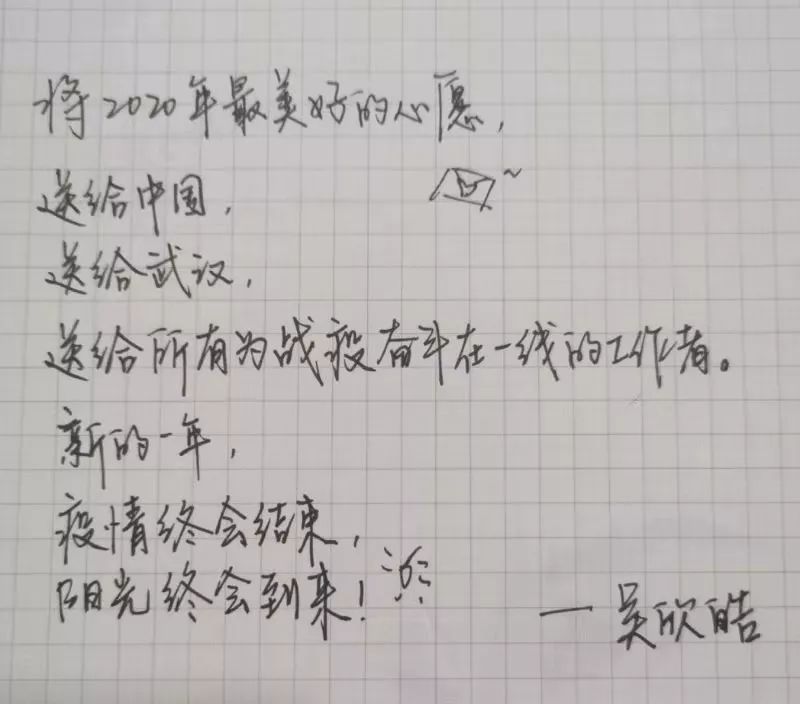 将2020年最美好的心愿,
送给中国,
送给武汉,
送给所有为战疫奋斗在一线的工作者。
新的一年,
疫情终会结束,
阳光终会到来!
—吴欣皓